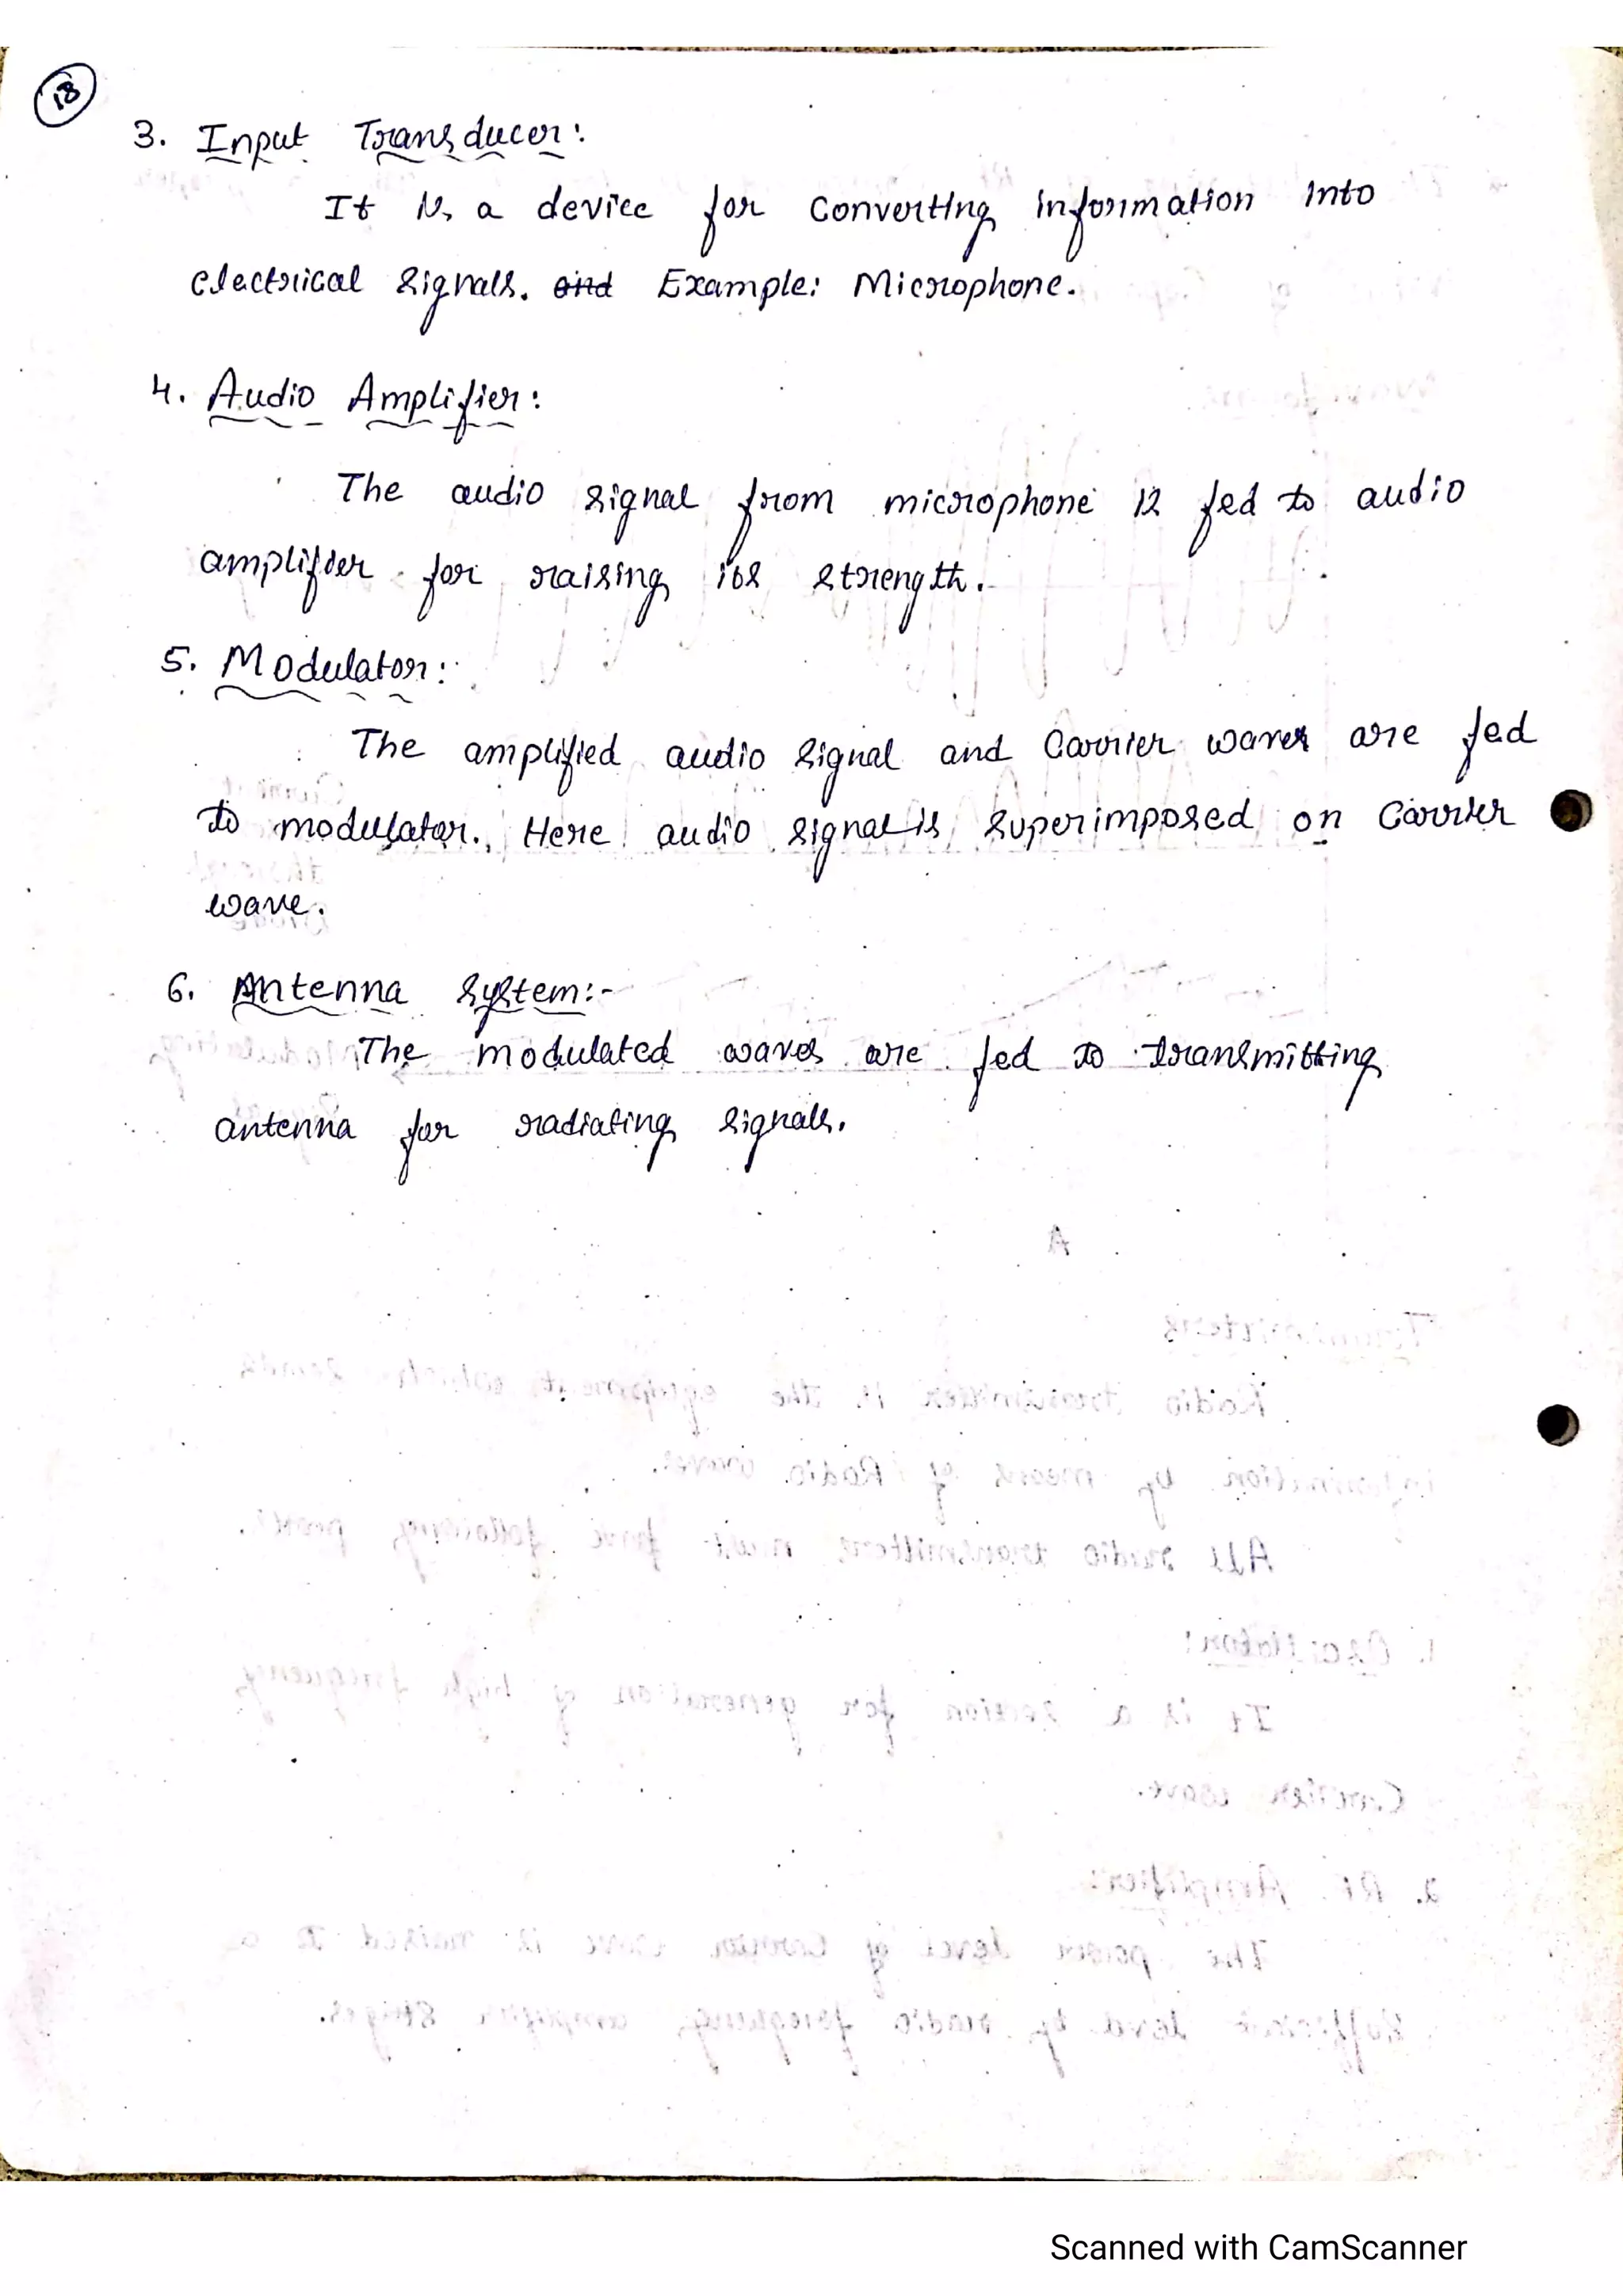 18
3. Input Transducer:
It is a device for Converting information into
electrical signals. and Example: Microphone.
4. Audio Amplifier:
The audio signal from microphone is fed to audio
amplifier for raising its strength.
5. Modulator:
The amplified audio signal and Carrier waves are fed
to modulator. Here audio signal is superimposed on Carrier
wave.
6. Antenna System:-
The modulated waves are fed to transmitting
antenna for radiating signals.
Scanned with CamScanner